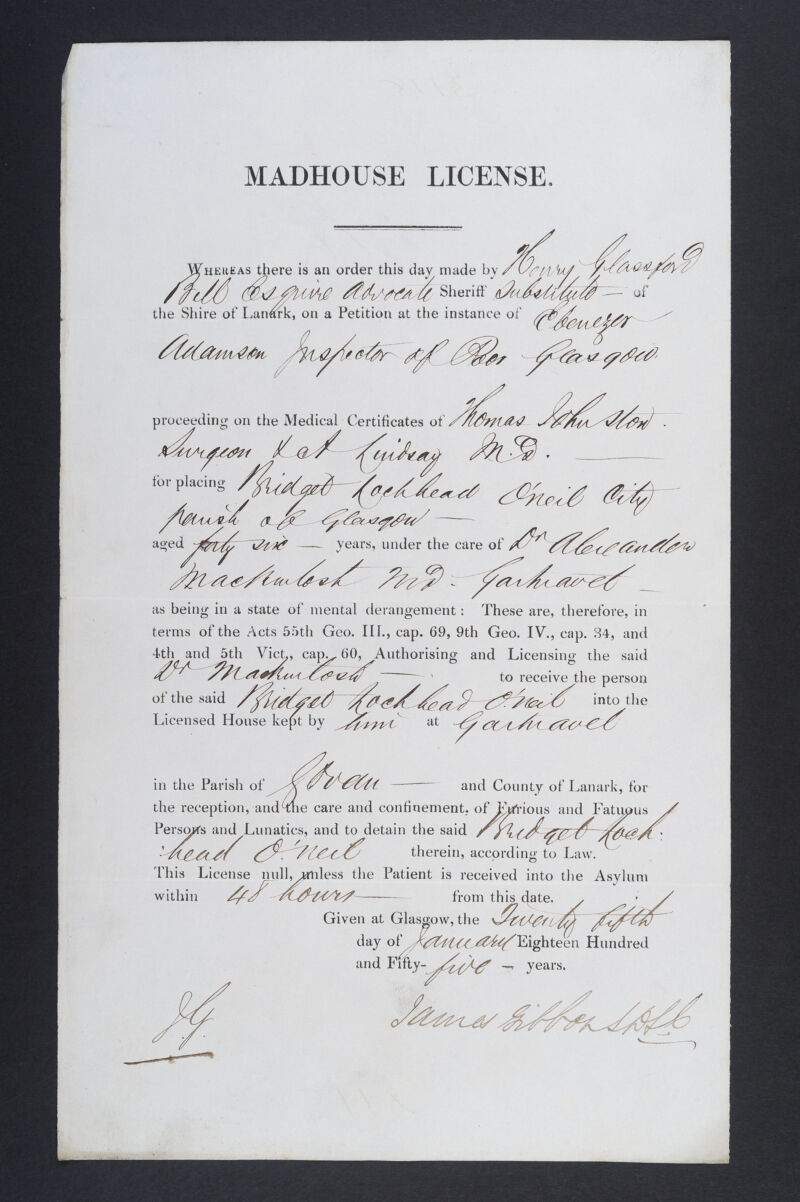 MADHOUSE LICENSE.
WHEREAS there is an order this day made by Henry Glassford
Bell Esquire Advocate Sheriff Substitute — of
the Shire of Lanark, on a Petition at the instance of Ebenezer
Adamson Inspector of Poor Glasgow
proceeding on the Medical Certificates of Thomas Johnston.
Surgeon & A Lindsay M.D. —
for placing Bridget Lochhead O'Neil City
parish of Glasgow —
aged forty six — years, under the care of Dr Alexander
Mackintosh M.D. Gartnavel —
as being in a state of mental derangement: These are, therefore, in
terms of the Acts 55th Geo. III., cap. 69, 9th Geo. IV., cap. 34, and
4th and 5th Vict., cap. 60, Authorising and Licensing the said
Dr Mackintosh — to receive the person
of the said Bridget Lochhead O'Neil into the
Licensed House kept by him at Gartnavel
in the Parish of Govan — and County of Lanark, for
the reception, and the care and confinement, of Furious and Fatuous
Persons and Lunatics, and to detain the said Bridget Loch:
:head O'Neil therein, according to Law.
This License null, unless the Patient is received into the Asylum
within 48 hours — from this date.
Given at Glasgow, the Twenty fifth
day of January Eighteen Hundred
and Fifty-five — years.
James Gibson
J.G.